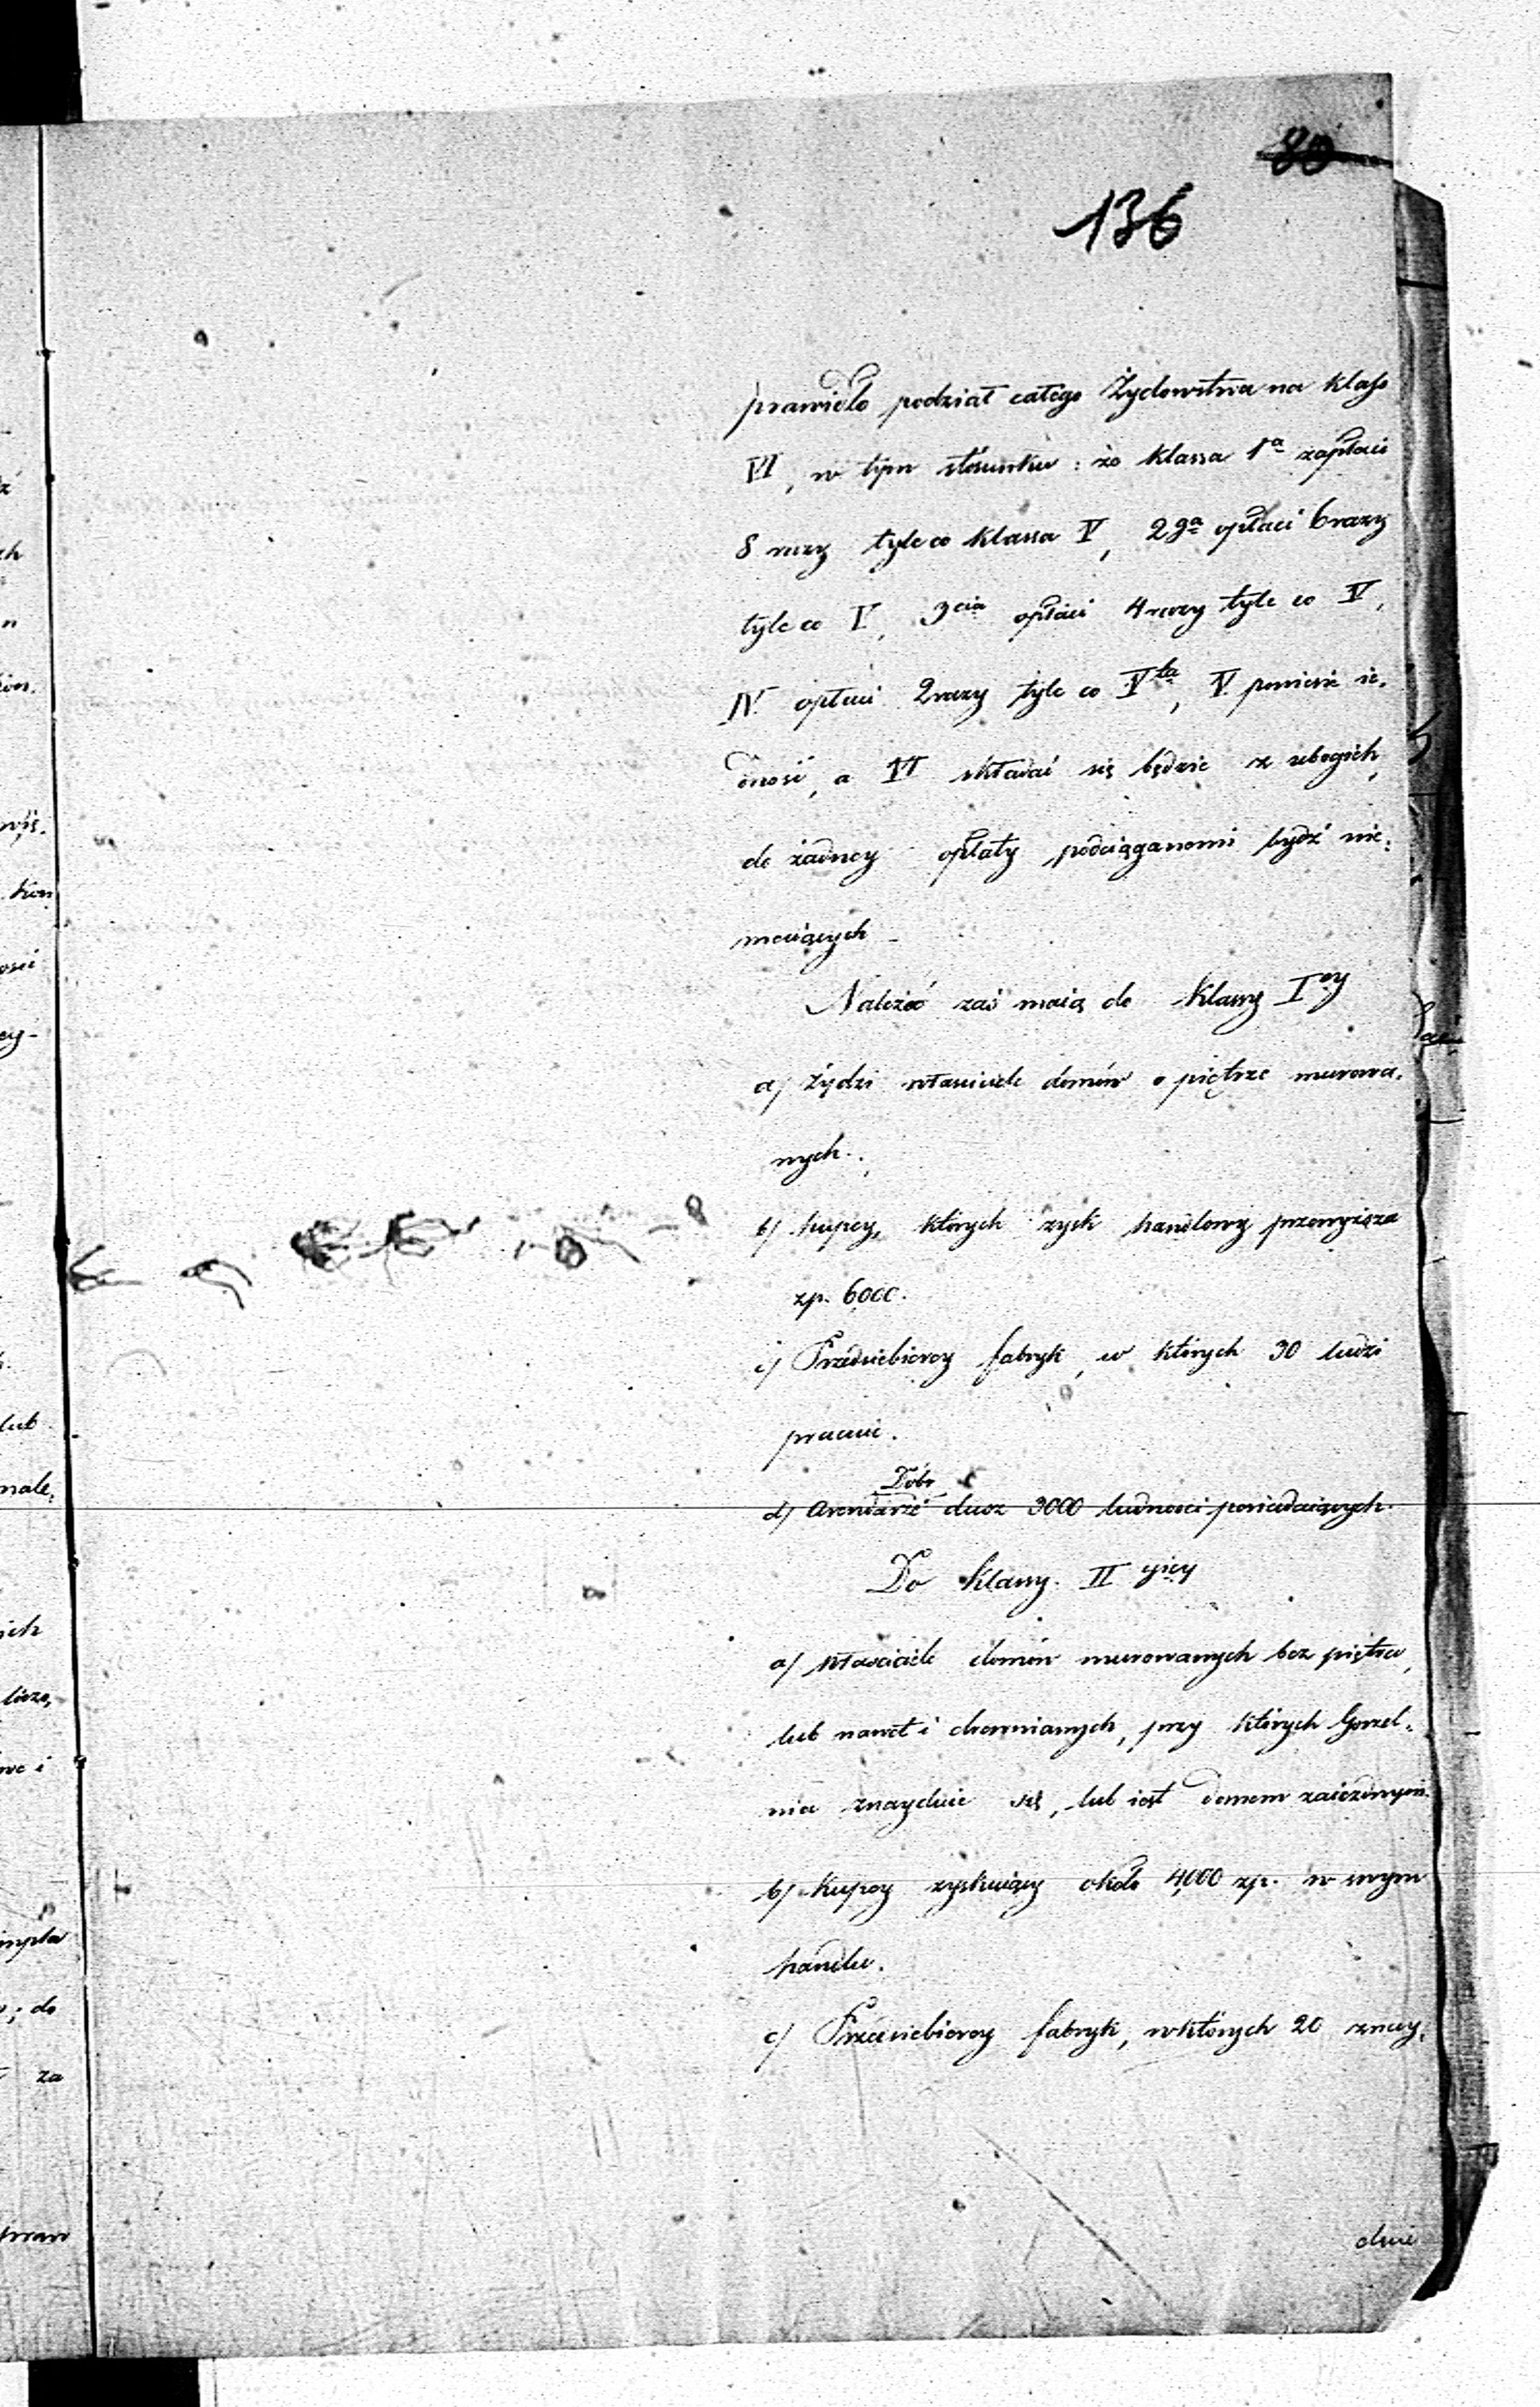 80
136
prawidło podział całego Żydowstwa na klass
VI, w tym stósunku: że klassa 1a zapłaci
8 razy tyle co klassa V, 2ga opłaci 6 razy
tyle co V, 3cia opłaci 4 razy tyle co V,
IV opłaci 2 razy tyle co Vta, V poniesie ie,
dność, a VI składać się będzie z ubogich,
do żadney opłaty pociąganemi bydź nie,
mogących
Należeć zaś maią do Klassy Iey
a) Żydzi własciciele domów o piętrze murowa,
nych.
b) kupcy, których zysk handlowy przewyższa
zp. 6000.
c) Przedsiebiorcy fabryk, w których 30 ludzi
pracuie.
Dóbr
d) Arendarze dusz 3000 ludnosci posiadaiących.
Do klassy II giey
a) Własciciele domów murowanych bez piętra,
lub nawet i drewnianych, przy których Gorzel,
nia znayduie się, lub iest domem zaiezdnym.
b) Kupcy zyskuiący około 4000 zp. w swym
handlu.
c) Przedsiebiorcy fabryk, w których 20 znay,
duie